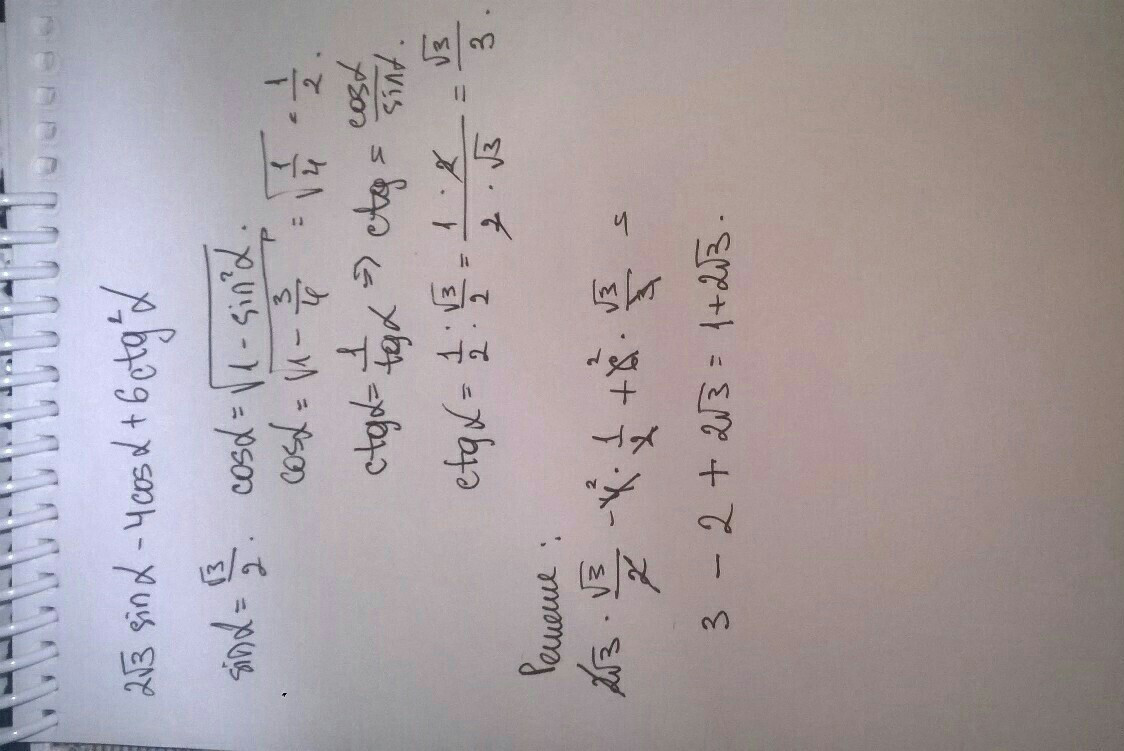 2√3 sinα - 4cosα + 6ctg²α
sinα = √3/2. cosα = √(1 - sin²α).
cosα = √(1 - 3/4) = √(1/4) = 1/2.
ctgα = 1/tgα => ctg = cosα/sinα.
ctgα = 1/2 : √3/2 = (1 · 2)/(2 · √3) = √3/3.
Решение:
2√3 · √3/2 - 4² · 1/2 + 6² · √3/3 =
3 - 2 + 2√3 = 1 + 2√3.